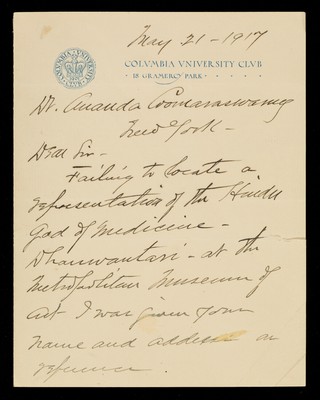 May 21-1917
COLVMBIA VNIVERSITY CLVB
18 GRAMERCY PARK
Dr. Ananda Coomaraswamy
New York -
Dear Sir -
Failing to locate a
representation of the Hindu
God of Medicine -
Dhanwantari - at the
Metropolitan Museum of
Art I was given your
name and address as
reference.